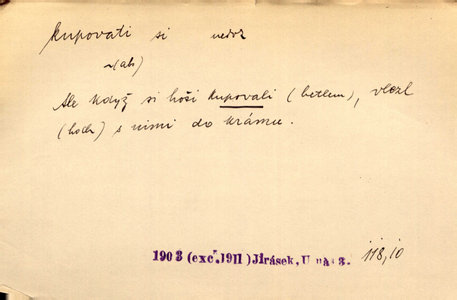 kupovati si nedok
~(ab)
Ale když si hoši kupovali (betlem), vlezl
(hoch) s nimi do krámu.
1903 (exc. 1911) Jirásek, U nás 3. 118,10